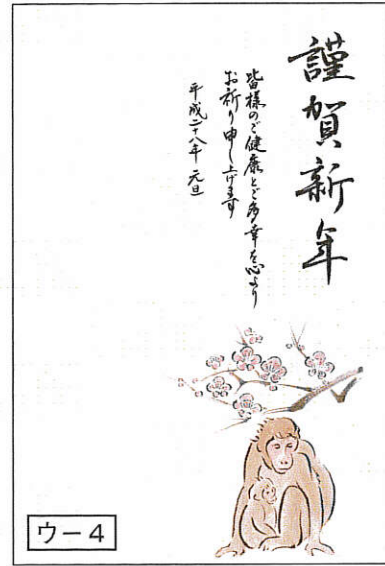 謹賀新年
皆様のご健康とご多幸を心より
お祈り申し上げます
平成二十八年 元旦
ウー4